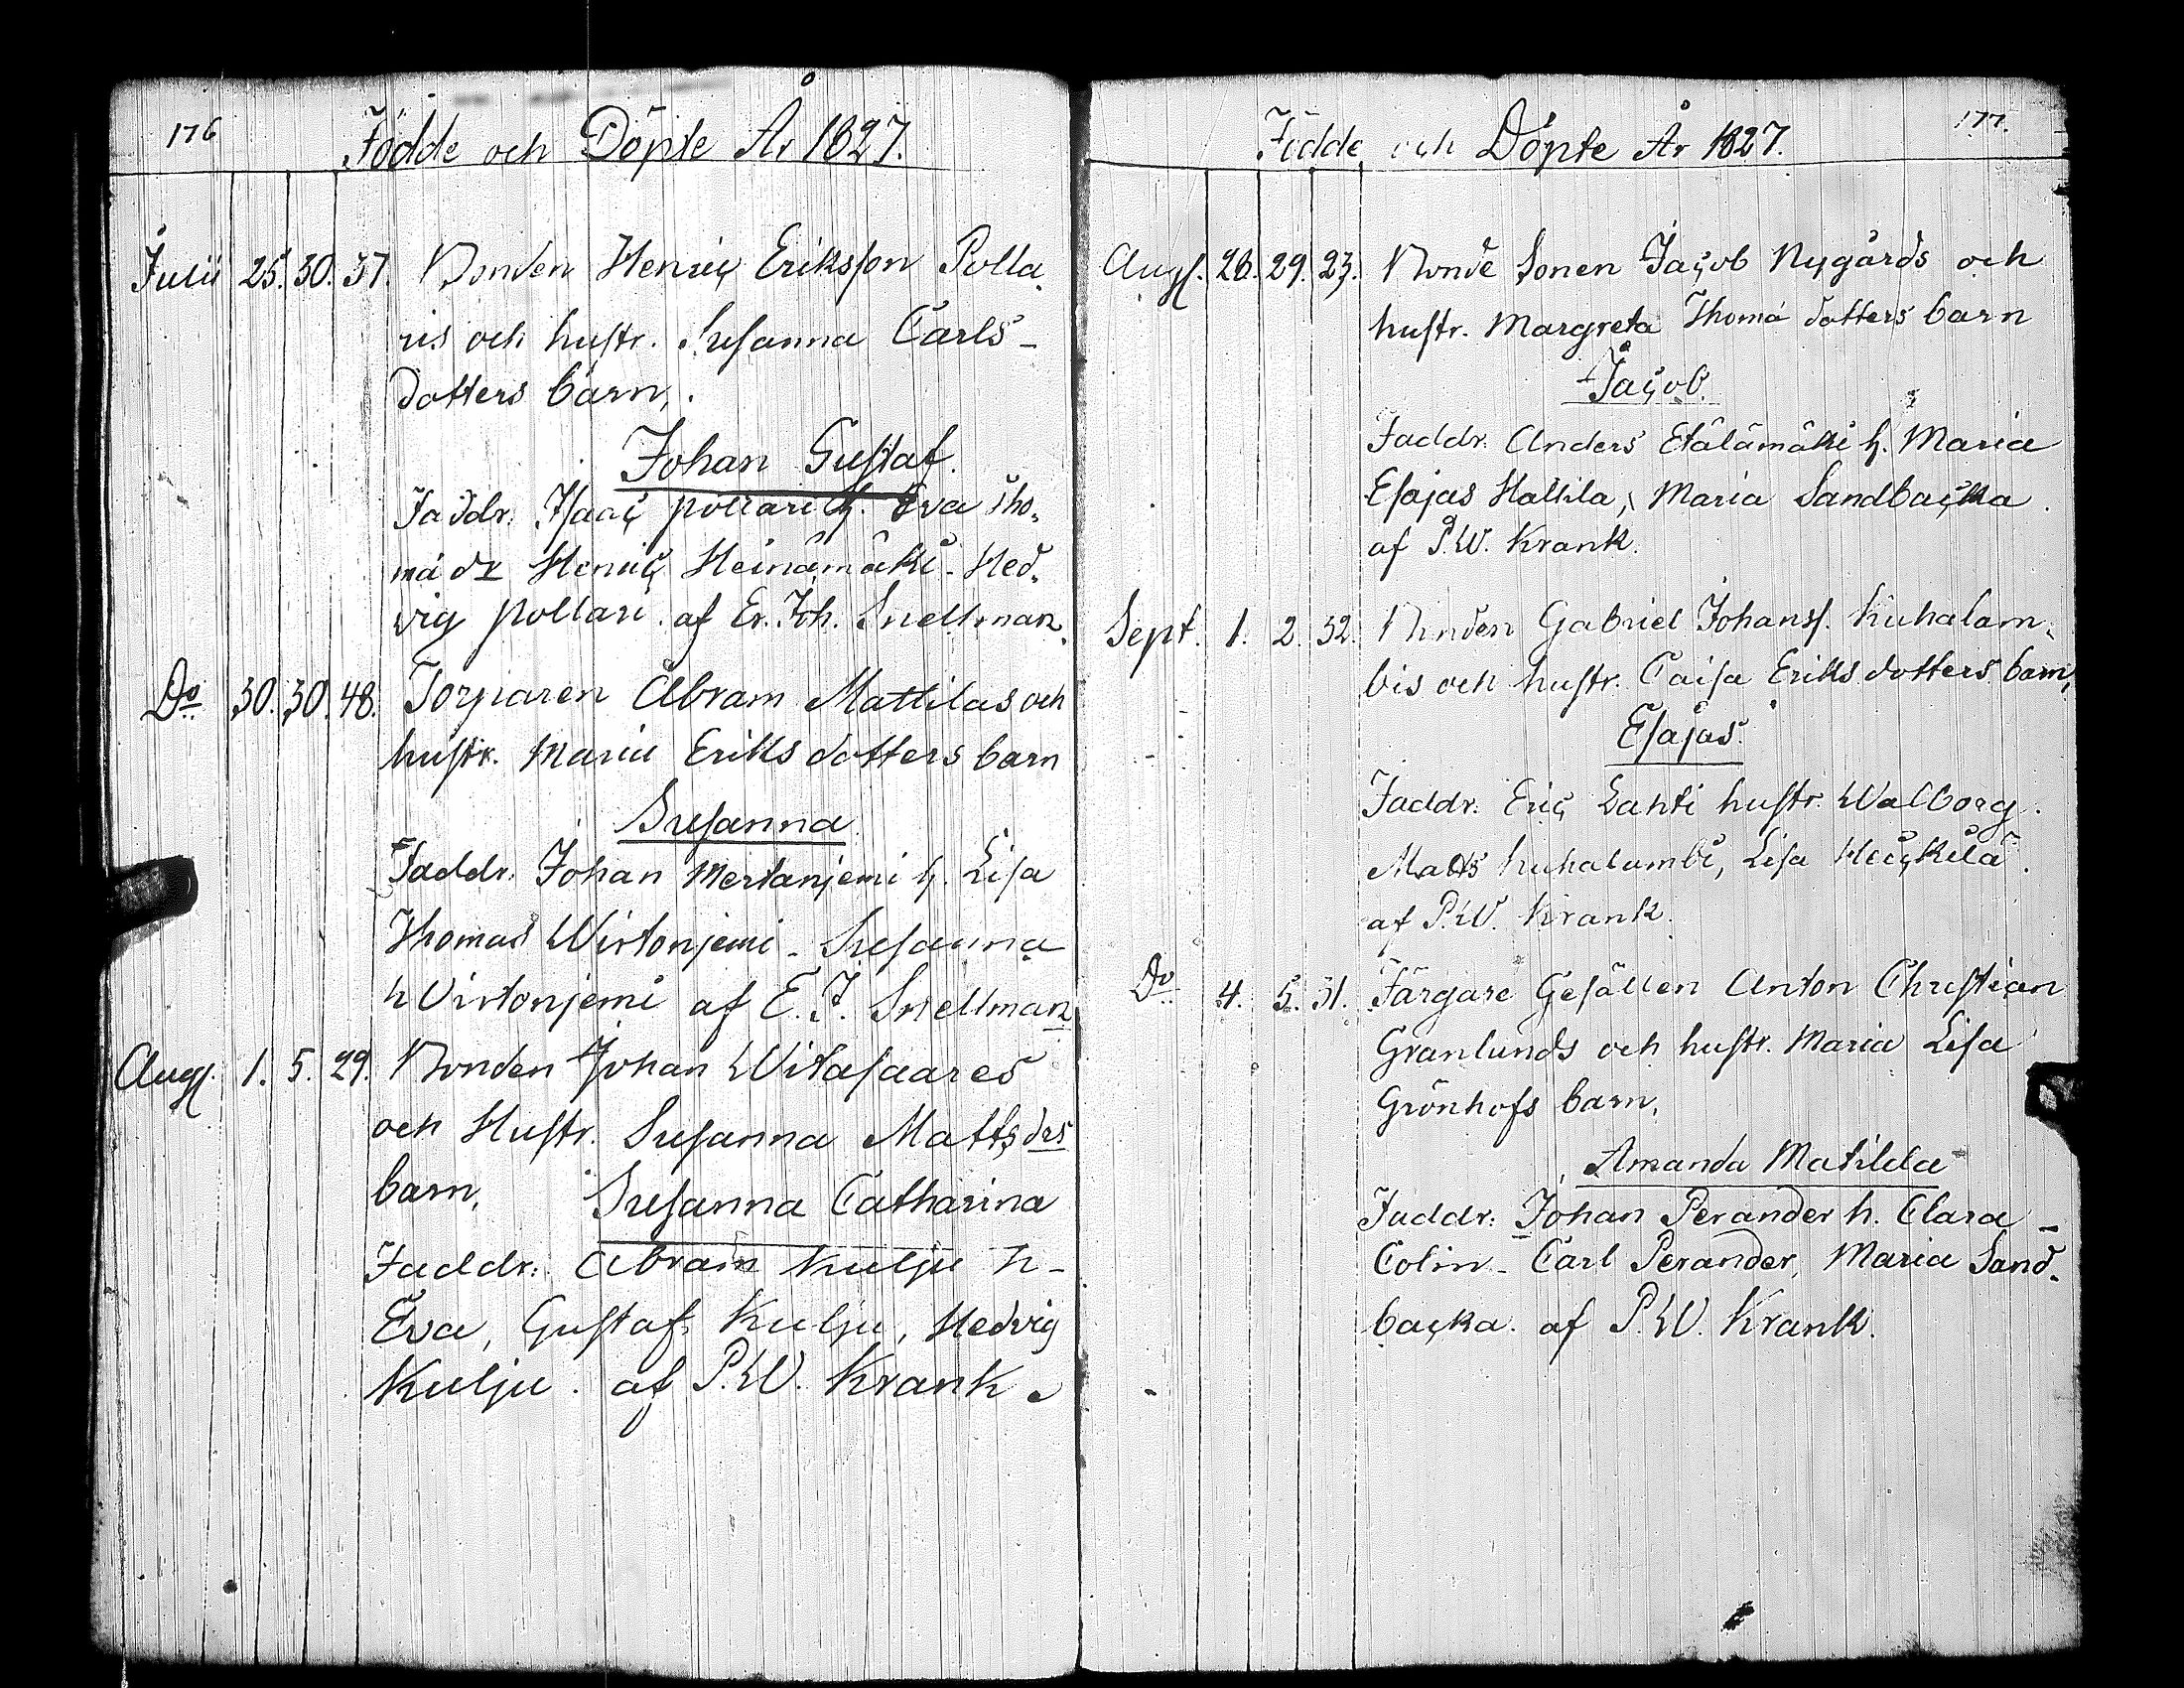 176
Födde och Döpte År 1827.
Julii 25. 30. 37. Bonden Henric Eriksson Polla-
ris och hustr. Susanna Carls-
dotters barn,
Johan Gustaf.
Faddr. Isaac pollari h. Eva Tho-
mä dr Henric Heinämäki - Hed-
vig pollari. af Er. Joh. Snellman.
Do 30. 30. 48. Torparen Abram Mattilas och
hustr. Maria Eriks dotters barn
Susanna
Faddr. Johan Mertanjemi h. Lisa
Thomas Wirtonjemi - Susanna
Wirtonjemi af E. J. Snellman
Aug. 1. 5. 29. Bonden Johan Witasaares
och Hustr. Susanna Matts drs
barn, Susanna Catharina
Faddr. Abram Kulju h-
Eva, Gustaf Kulju, Hedvig
Kulju. af P.W. Krank
177.
Födde och Döpte År 1827.
Aug. 26. 29. 23. Bonde Sonen Jacob Nygårds och
hustr. Margreta Thomä dotters barn
Jacob.
Faddr. Anders Etälämäki h. Maria
Esajas Hallila, Maria Sandbacka
af P.W. Krank.
Sept. 1. 2. 32. Bonden Gabriel Johanss. Kuhalam-
bis och hustr. Caisa Eriks dotters barn,
Esajas.
Faddr. Eric Lahti hustr. Walborg.
Matts Kuhalambi, Lisa Heickilä.
af P.W. Krank.
Do 4. 5. 31. Färgare Gesällen Anton Christian
Granlunds och hustr. Maria Lisa
Grönhofs barn,
Amanda Matilda
Faddr. Johan Perander h. Clara
Colin - Carl Perander, Maria Sand-
backa. af P.W. Krank.